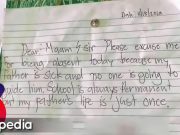 Dear Maam & Sir Please excuse me
for being absent today because my
father is sick and no one is going to
him. School is always permanent
but my father's life is just once.
pedia